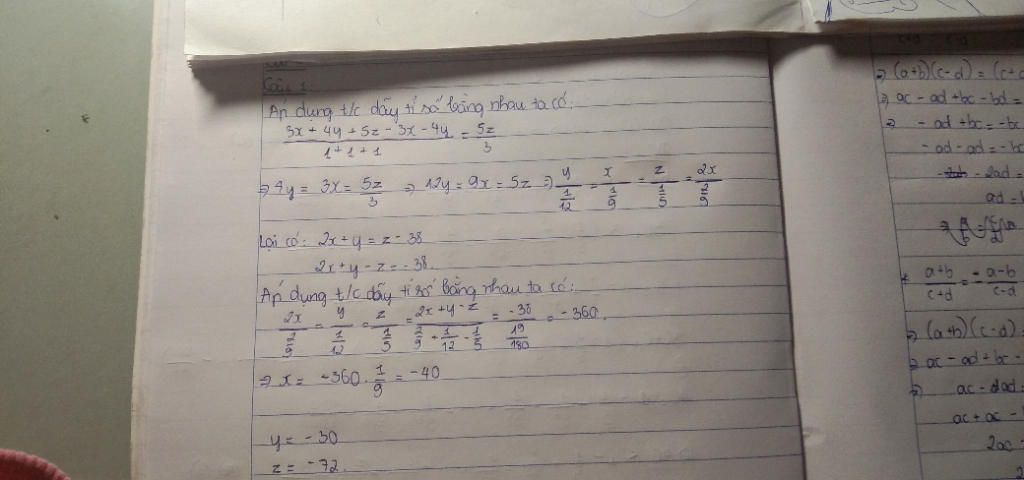 Câu 1:
Áp dụng t/c dãy tỉ số bằng nhau ta có:
(3x + 4y + 5z - 3x - 4y)/(1 + 1 + 1) = 5z/3
=> 4y = 3x = 5z/3 => 12y = 9x = 5z => y/(1/12) = x/(1/9) = z/(1/5) = 2x/(2/9)
Lại có: 2x + y = z - 38
2x + y - z = -38.
Áp dụng t/c dãy tỉ số bằng nhau ta có:
2x/(2/9) = y/(1/12) = z/(1/5) = (2x + y - z)/(2/9 + 1/12 - 1/5) = -38/(19/180) = -360.
=> x = -360 . 1/9 = -40
y = -30
z = -72.
=> (a+b)(c-d) = (c+
=> ac - ad + bc - bd =
=> - ad + bc = - bc
- ad - ad = - bc
- 2ad =
ad =
* (a+b)/(c+d) = (a-b)/(c-d)
=> (a+b)(c-d)
=> ac - ad + bc -
=>
ac + ac -
2ac =